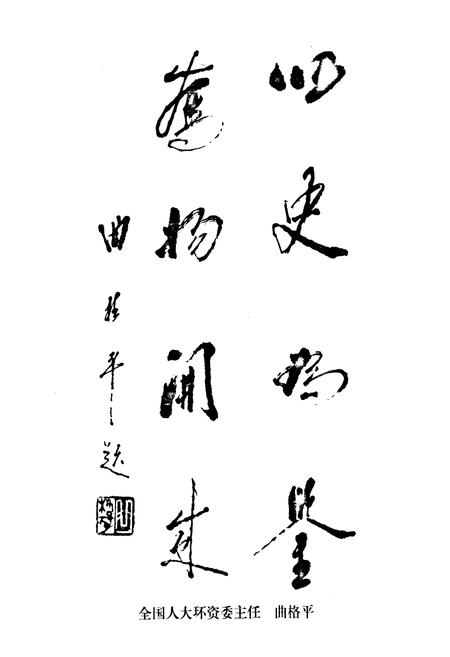 以史為鉴
物開来
曲格平题
全国人大环资委主任 曲格平